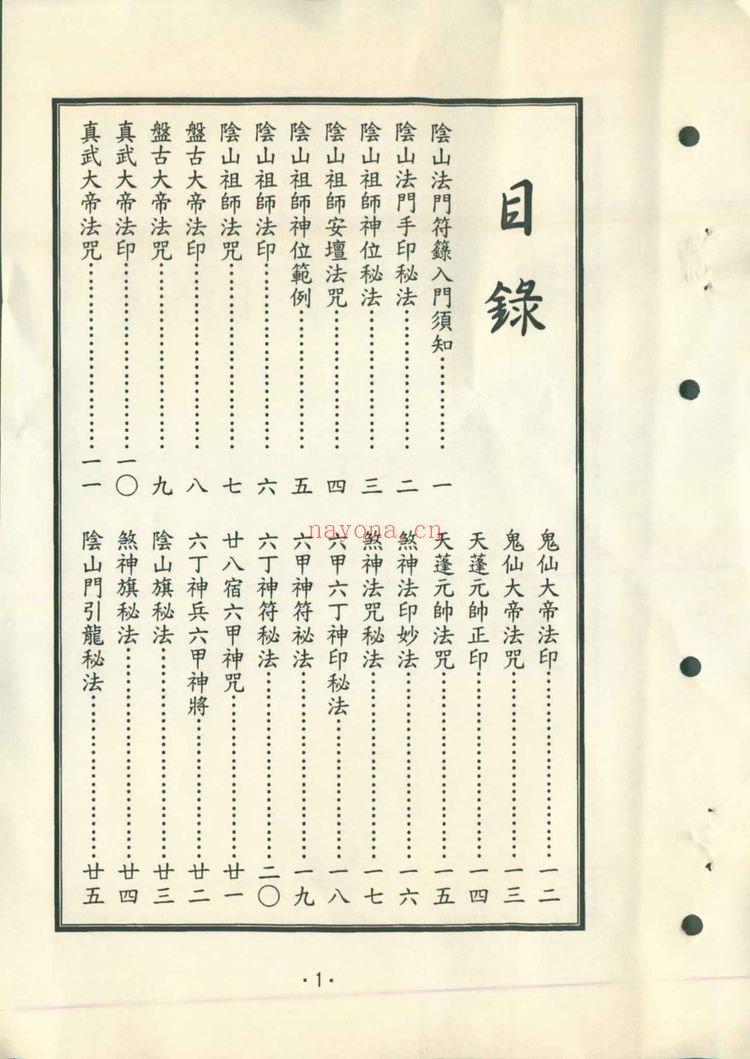 目錄
陰山法門符籙入門須知…………一
陰山法門手印秘法…………二
陰山祖師神位秘法…………三
陰山祖師安壇法咒…………四
陰山祖師神位範例…………五
陰山祖師法印…………六
陰山祖師法咒…………七
盤古大帝法印…………八
盤古大帝法咒…………九
真武大帝法印…………一〇
真武大帝法咒…………一一
鬼仙大帝法印…………一二
鬼仙大帝法咒…………一三
天蓬元帥正印…………一四
天蓬元帥法咒…………一五
煞神法印妙法…………一六
煞神法咒秘法…………一七
六甲六丁神印秘法…………一八
六甲神符祕法…………一九
六丁神符秘法…………二〇
廿八宿六甲神咒…………廿一
六丁神兵六甲神將…………廿二
陰山旗秘法…………廿三
煞神旗秘法…………廿四
陰山門引龍秘法…………廿五
·1·
nayona.cn